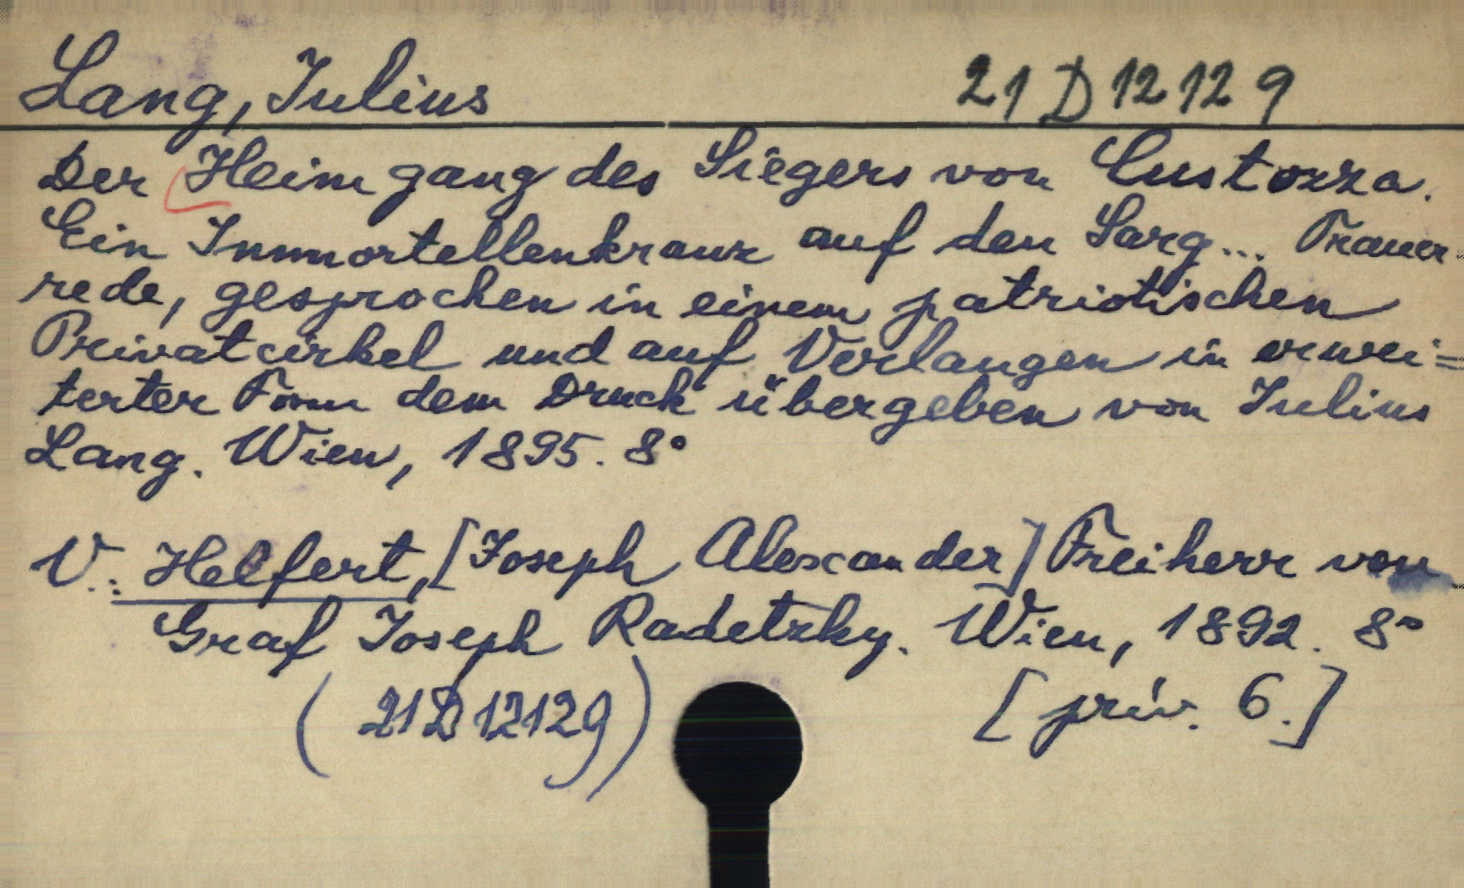 Lang, Julius 21 D 12 12 9
Der Heimgang des Siegers von Custozza.
Ein Immortellenkranz auf den Sarg... Trauer-
rede, gesprochen in einem patriotischen
Privatcirkel und auf Verlangen in erwei=
terter Form dem Druck übergeben von Julius
Lang. Wien, 1895. 8°
V.: Helfert, [Joseph Alexander] Freiherr von
Graf Joseph Radetzky. Wien, 1892. 8°
(21D12129) [priv. 6.]